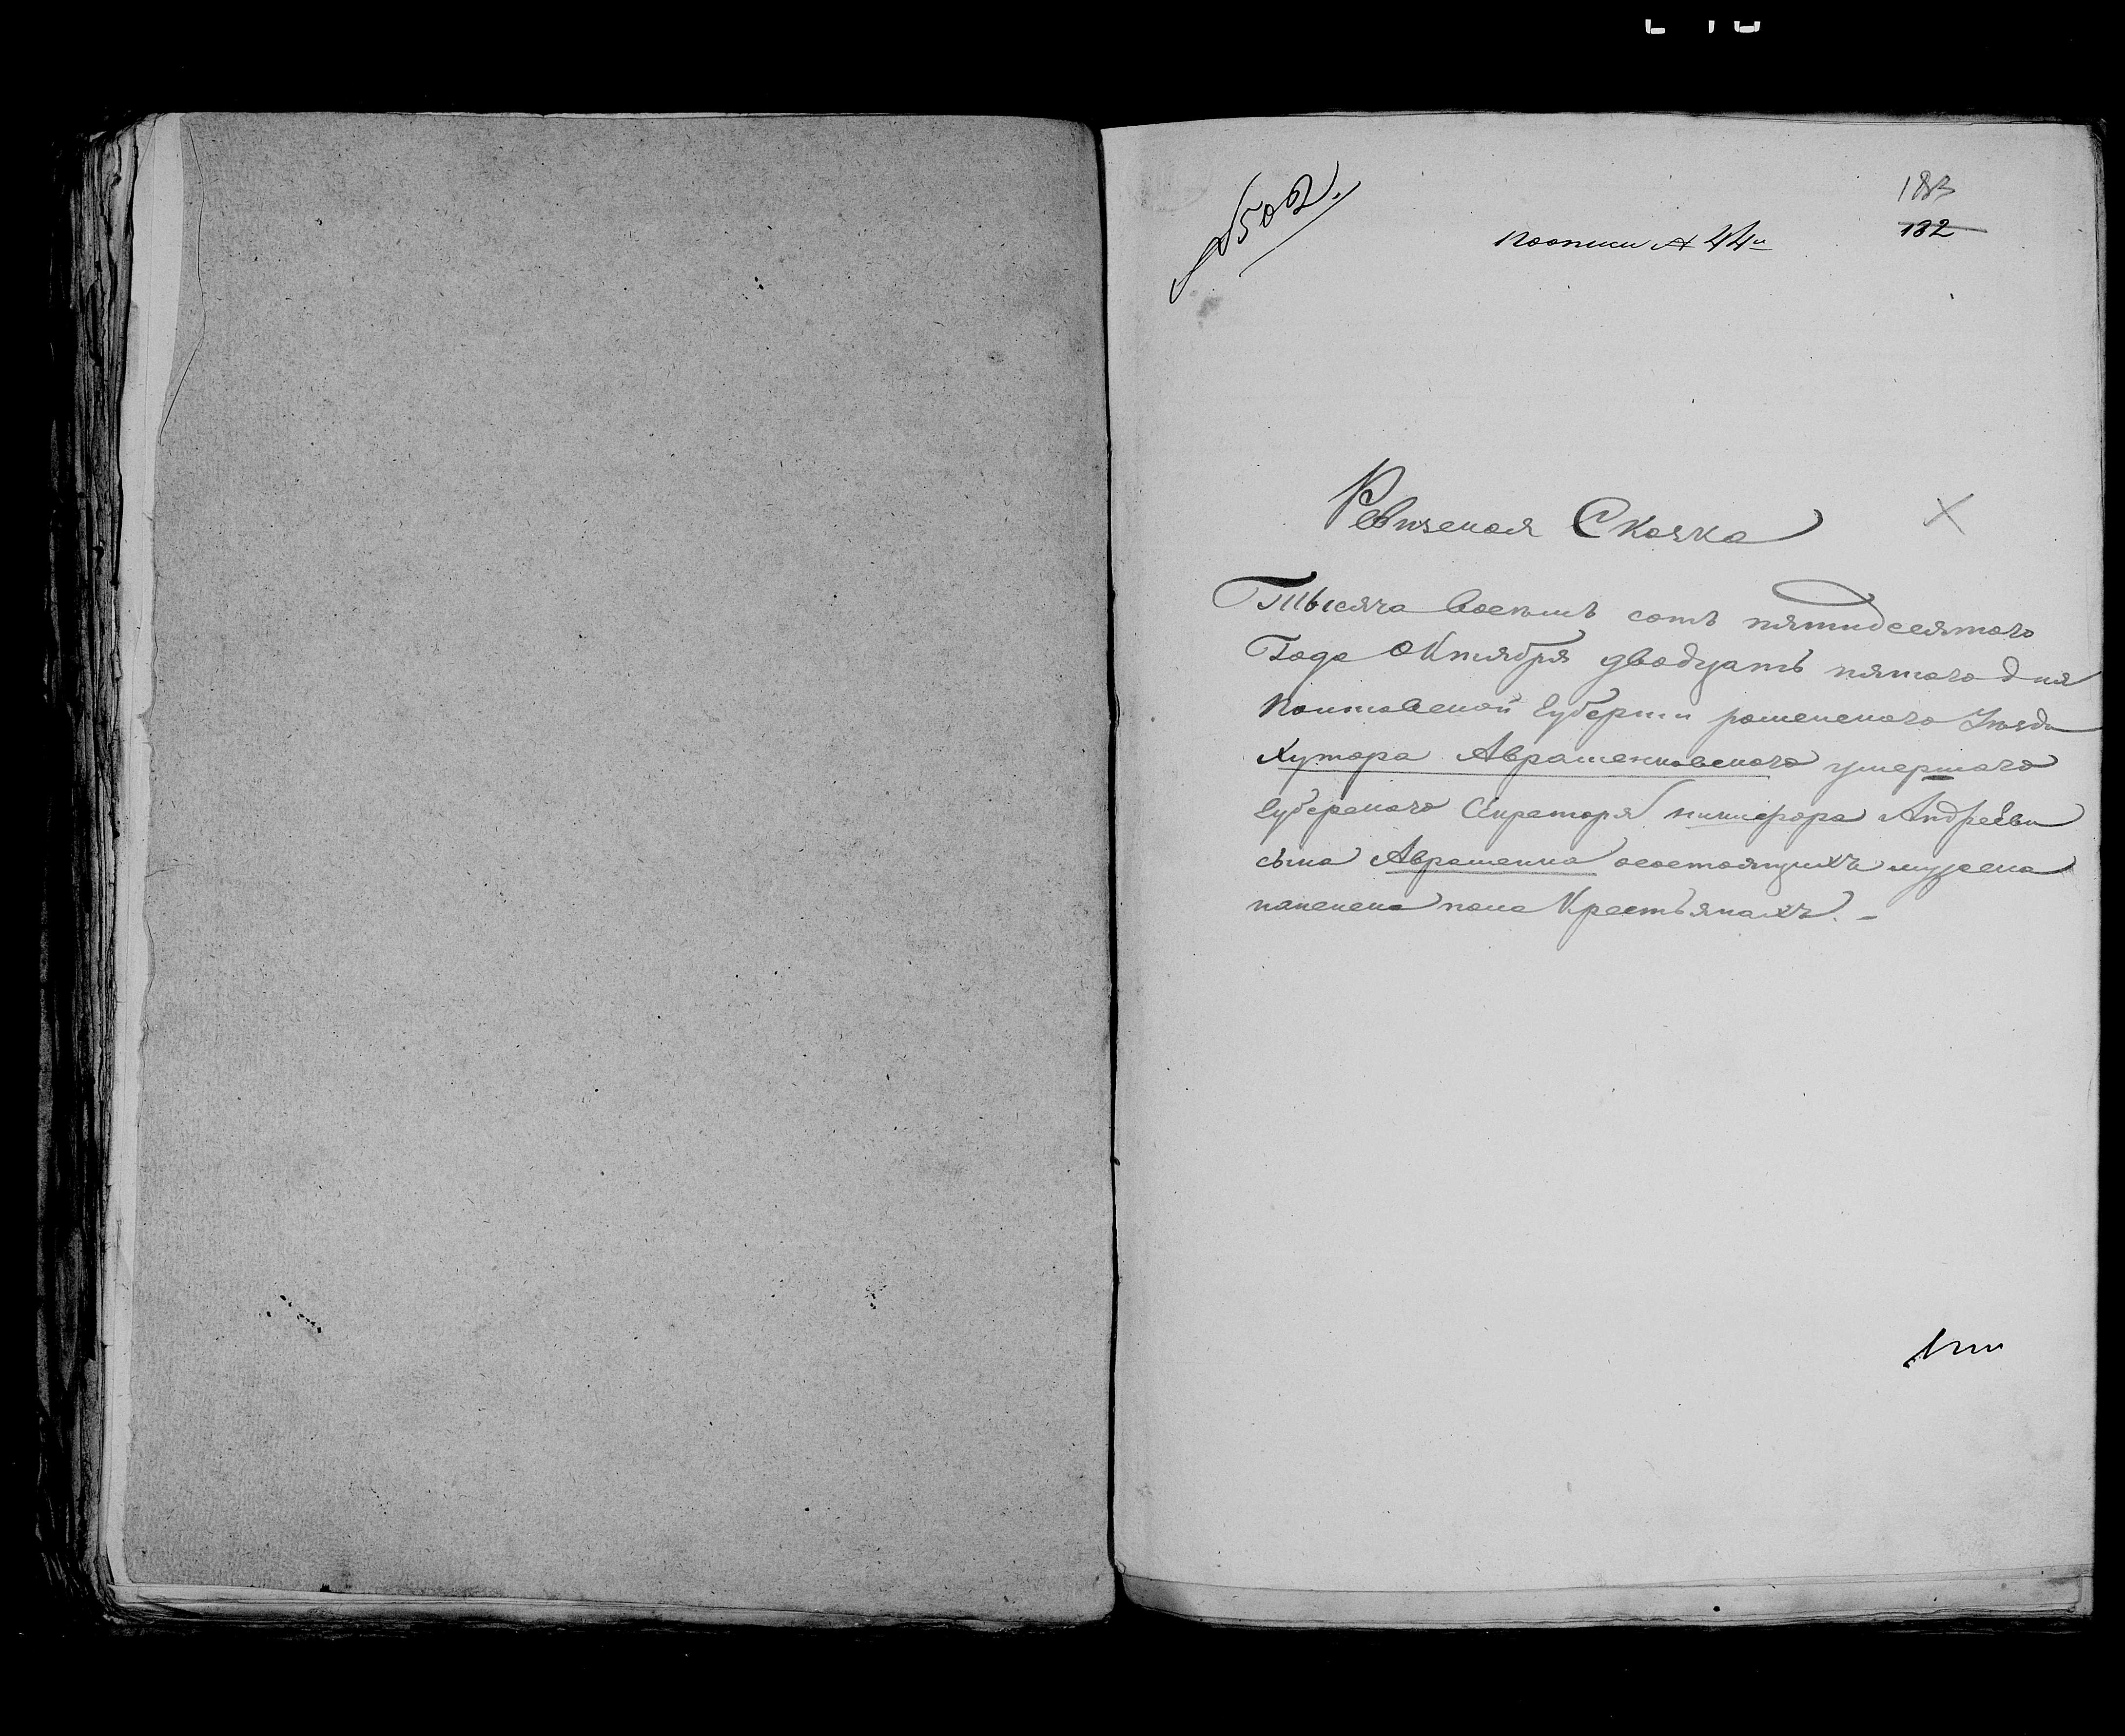 № 502.
183
По описи № 44й
132
Ревизская Сказка
Тысяча восемь сотъ пятидесятого
Года Октября двадцать пятого дня
Полтавской Губернии роменского Уезда
Хутора Аврашенковского умершаго
Губерского Секраторя никифора Андреева
сына Аврашенка осостоящихъ мужеска
иженска пола Крестьянахъ. –